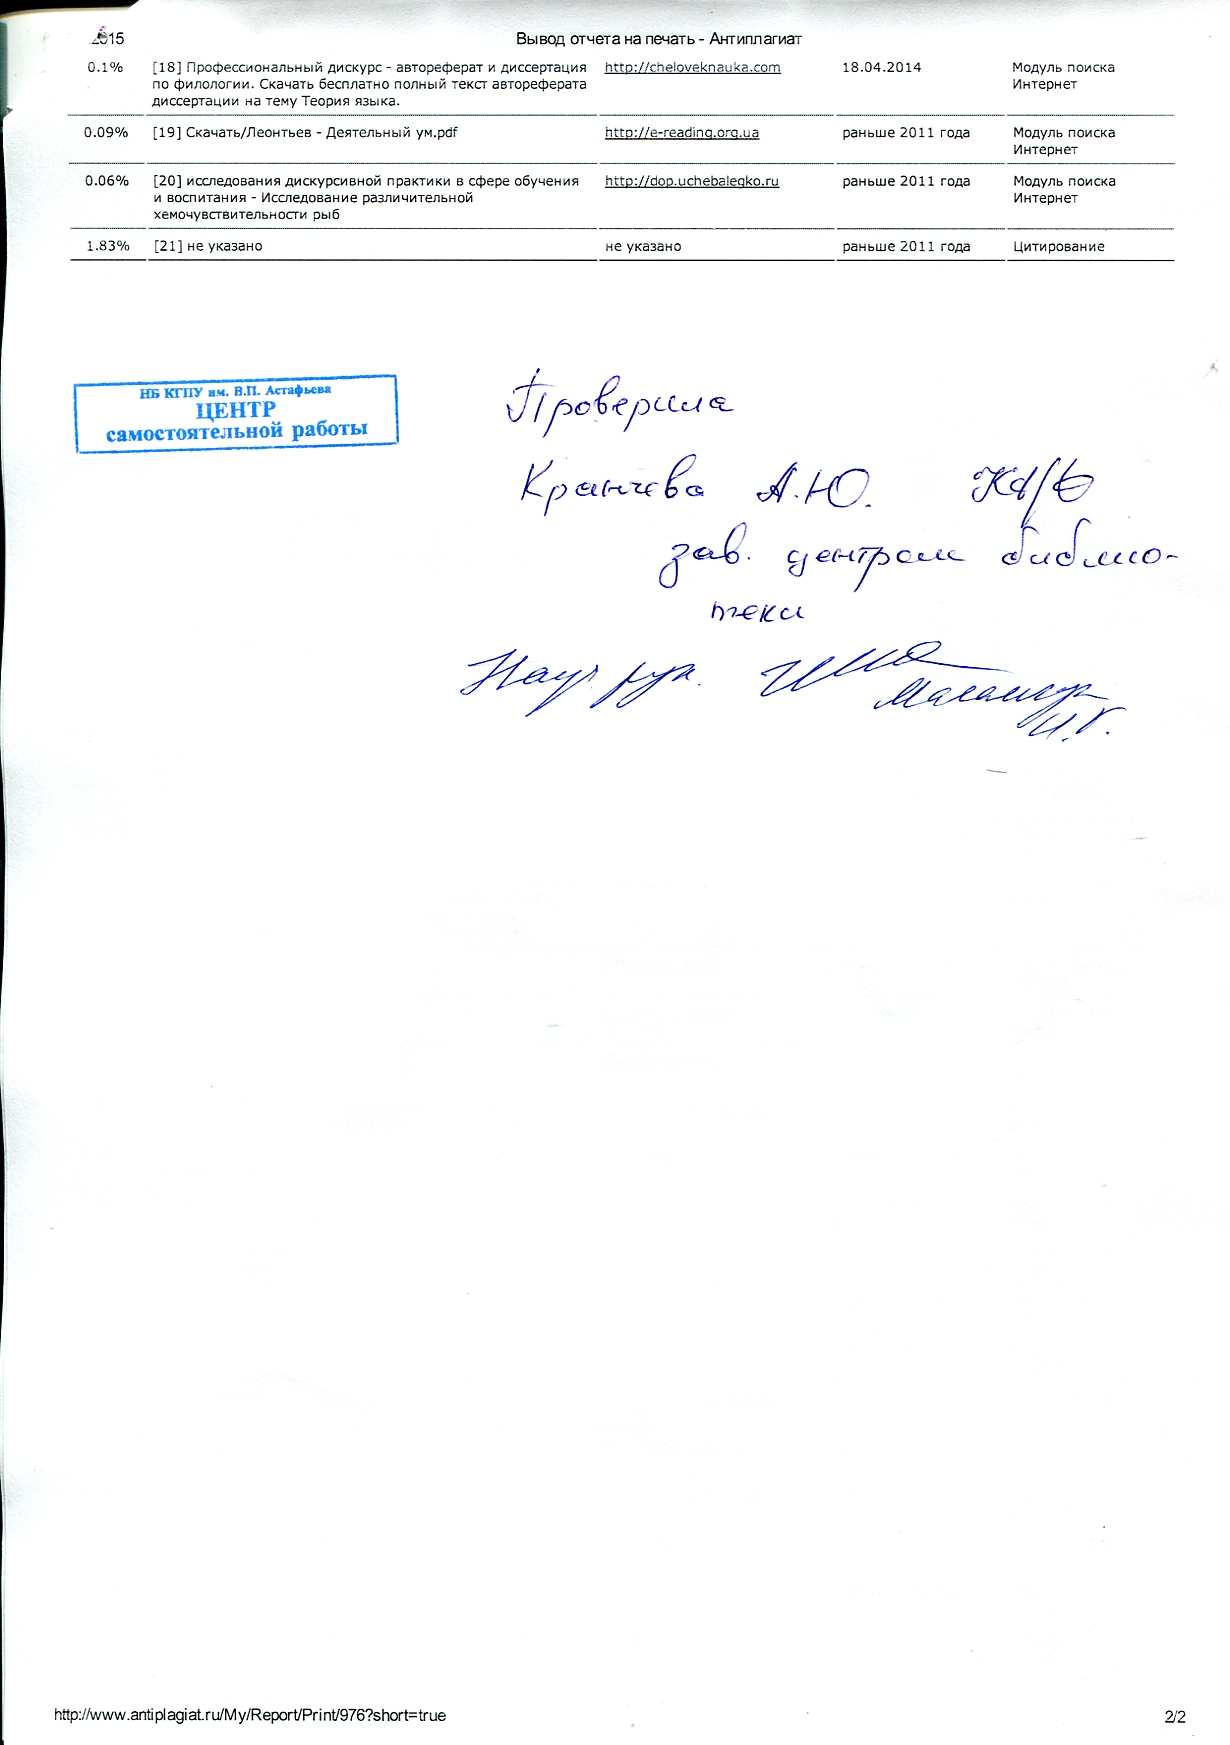 2015 Вывод отчета на печать - Антиплагиат
0.1% [18] Профессиональный дискурс - автореферат и диссертация http://cheloveknauka.com 18.04.2014 Модуль поиска
по филологии. Скачать бесплатно полный текст автореферата Интернет
диссертации на тему Теория языка.
0.09% [19] Скачать/Леонтьев - Деятельный ум.pdf http://e-reading.org.ua раньше 2011 года Модуль поиска
Интернет
0.06% [20] исследования дискурсивной практики в сфере обучения http://dop.uchebalegko.ru раньше 2011 года Модуль поиска
и воспитания - Исследование различительной Интернет
хемочувствительности рыб
1.83% [21] не указано не указано раньше 2011 года Цитирование
НБ КГПУ им. В.П. Астафьева
ЦЕНТР
самостоятельной работы
Проверила
А.Ю.
зав. центром библио-
теки
Науч. рук.
И.Г.
http://www.antiplagiat.ru/My/Report/Print/976?short=true 2/2